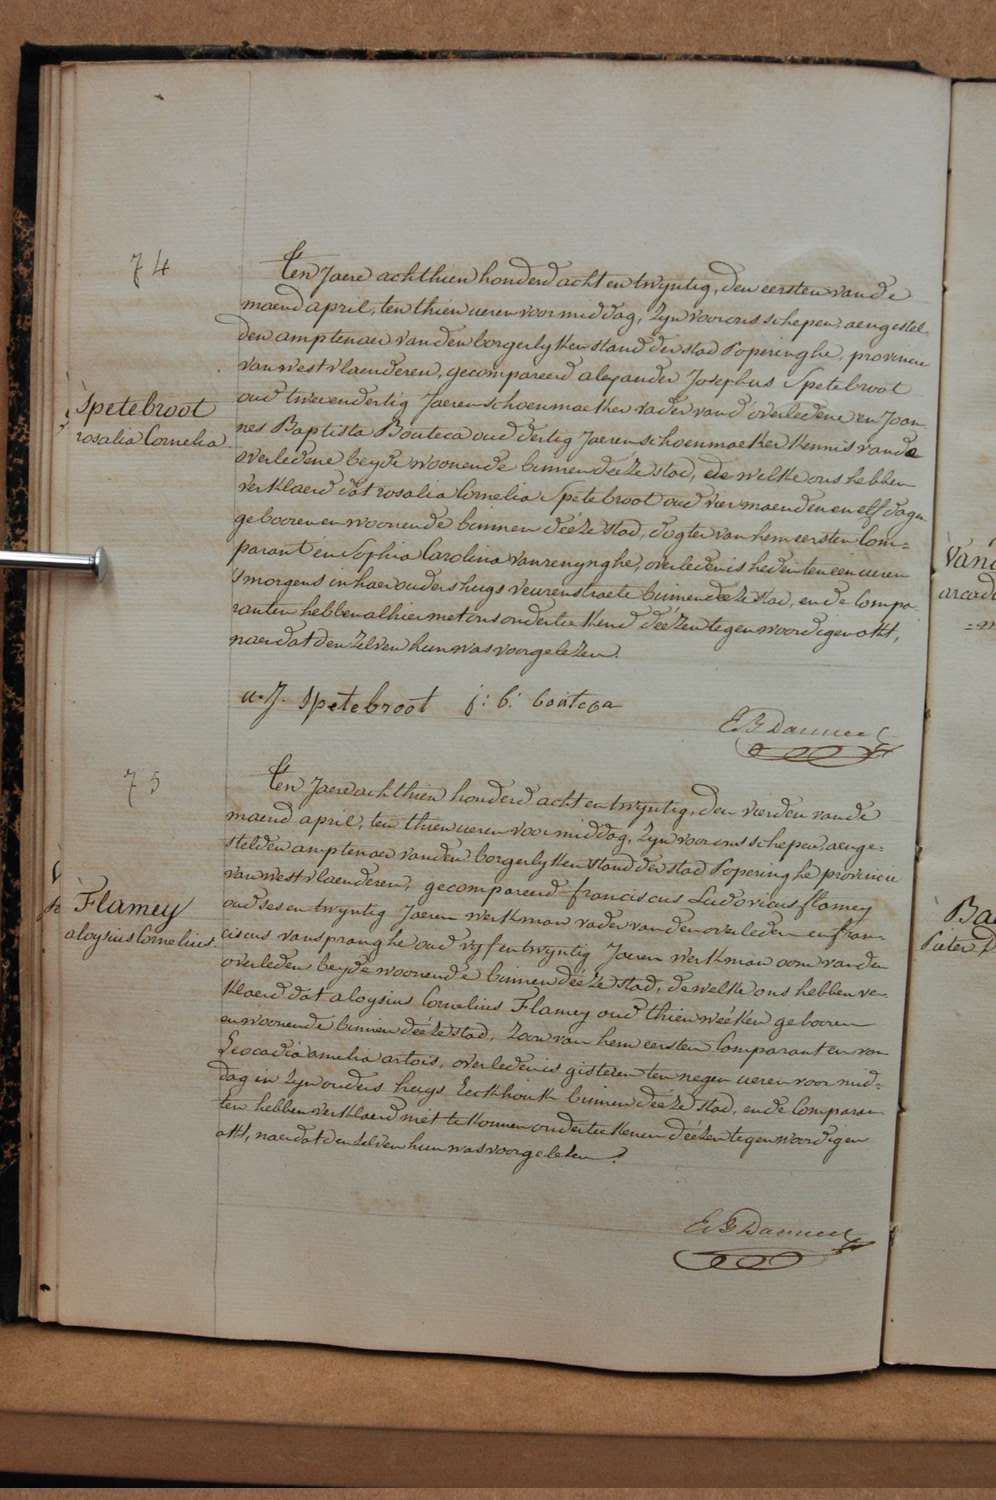 74
Spetebroot
rosalia Cornelia
Ten Jaere achthien honderd acht en twyntig, den eersten van de
maend april, ten thien ueren voormiddag, Zyn voor ons schepen aengestel-
den amptenaer van den borgerlyken stand der stad Poperinghe, provincie
van westvlaenderen, gecompareerd alexander Josephus Spetebroot
oud twee en dertig Jaeren schoenmaeker vader van d'overledene en Joan-
nes Baptista Bouteca oud dertig Jaeren schoenmaeker kennis van de
overledene beyde woonende binnen deéze stad, de welke ons hebben
verklaerd dat rosalia Cornelia Spetebroot oud vier maenden en elf dagen
gebooren en woonende binnen deéze stad, dogter van hem eersten Com=
parant en Sophia Carolina vanrenynghe, overleden is heden ten een ueren
'smorgens in haer ouders huys veurenstraete binnen deéze stad, en de Compa-
ranten hebben alhier met ons onderteekend deézen tegenwoordigen akt,
naer dat den zelven hun was voorgelezen.
a. J. Spetebroot j: b: bouteca
E B Danneel
75
Flamey
aloysius Cornelius
Ten Jaere achthien honderd acht en twyntig, den vierden van de
maend april, ten thien ueren voormiddag, Zyn voor ons schepen aenge=
stelden amptenaer van den borgerlyken stand der stad Poperinghe provincie
van westvlaenderen, gecompareerd franciscus Ludovicus flamey
oud ses en twyntig Jaeren werkman vader van den overleden en fran-
ciscus vanspranghe oud vyf en twyntig Jaeren werkman oom van den
overleden beyde woonende binnen deéze stad, de welke ons hebben ver-
klaerd dat aloysius Cornelius Flamey oud thien weéken gebooren
en woonende binnen deéze stad, zoon van hem eersten Comparant en van
Leocadia amelia artois, overleden is gisteren ten negen ueren voor mid=
dag in zyn ouders huys Eeckhoutk binnen deéze stad, en de Comparan-
ten hebben verklaerd niet te konnen onderteekenen deézen tegenwoordigen
akt, naer dat den zelven hun was voorgelezen.
E B Danneel
Ba
Pieter D
arcad